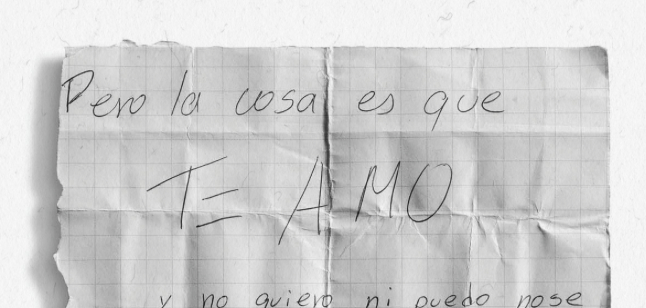 Pero la cosa es que
TE AMO
y no quiero ni puedo nose